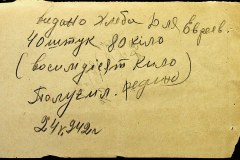 видано Хлеба Для Евреев.
40 штук 80 кіло
(восимдісят Кило
Получил.
24 х 942 г